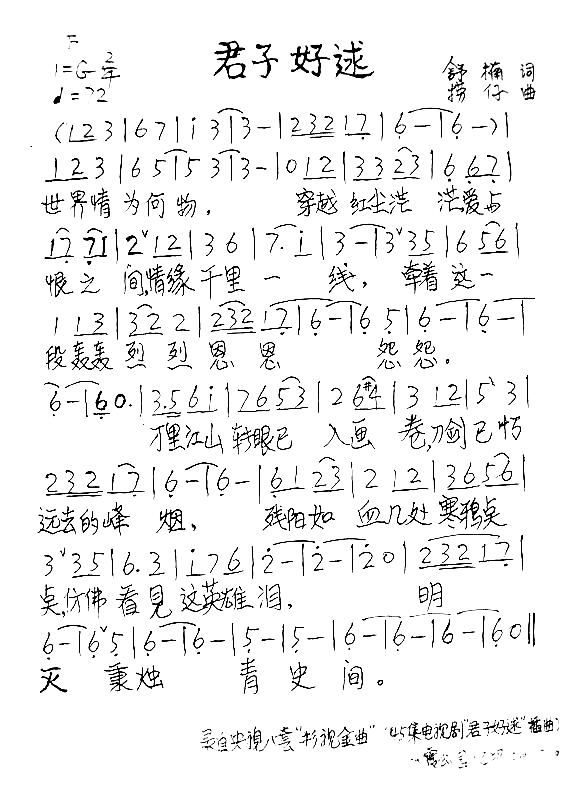 F
1=G 2/4
♩=72
君子好逑
舒楠 词
捞仔 曲
(1 2 3 | 6 7 | i 3 | 3 - | 2 3 2 1 7 | 6 - | 6 - ) |
1 2 3 | 6 5 | 5 3 | 3 - | 0 1 2 | 3 3 2 3 | 6 6 7 |
世界情为何物, 穿越红尘茫 茫爱与
1 7 7 1 | 2 ˅ 1 2 | 3 6 | 7. i | 3 - | 3 ˅ 3 5 | 6 5 6 |
恨之 间,情缘千里一 线, 牵着这一
1 1 3 | 3 2 2 | 2 3 2 1 7 | 6 - | 6 5 | 6 - | 6 - |
段轰轰烈烈恩恩 怨怨。
6 - | 6 0. | 3.5 6 i | 7 6 5 3 | 2 6 #4 | 3 1 2 | 5 ˅ 3 |
万里江山转眼已 入画 卷,刀剑已忘
2 3 2 1 7 | 6 - | 6 - | 6 1 2 3 | 2 1 2 | 3 6 5 6 |
远去的峰 烟, 残阳如血几处寒鸦桌
3 ˅ 3 5 | 6. 3 | i 7 6 | 2 - | 2 - | 2 0 | 2 3 2 1 7 |
桌,仿佛看見这英雄泪, 明
6 - | 6 ˅ 5 | 6 - | 6 - | 5 - | 5 - | 6 - | 6 - | 6 - | 6 0 ‖
灭 秉烛 青史间。
录自央视八套"影视金曲" (45集电视剧"君子好逑"插曲)